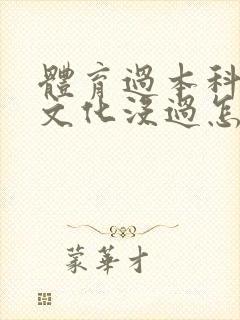 體育過本科
文化沒過怎
蒙華才